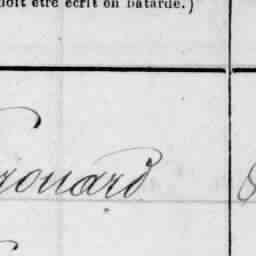 doit être écrit en bâtarde.)
rouard